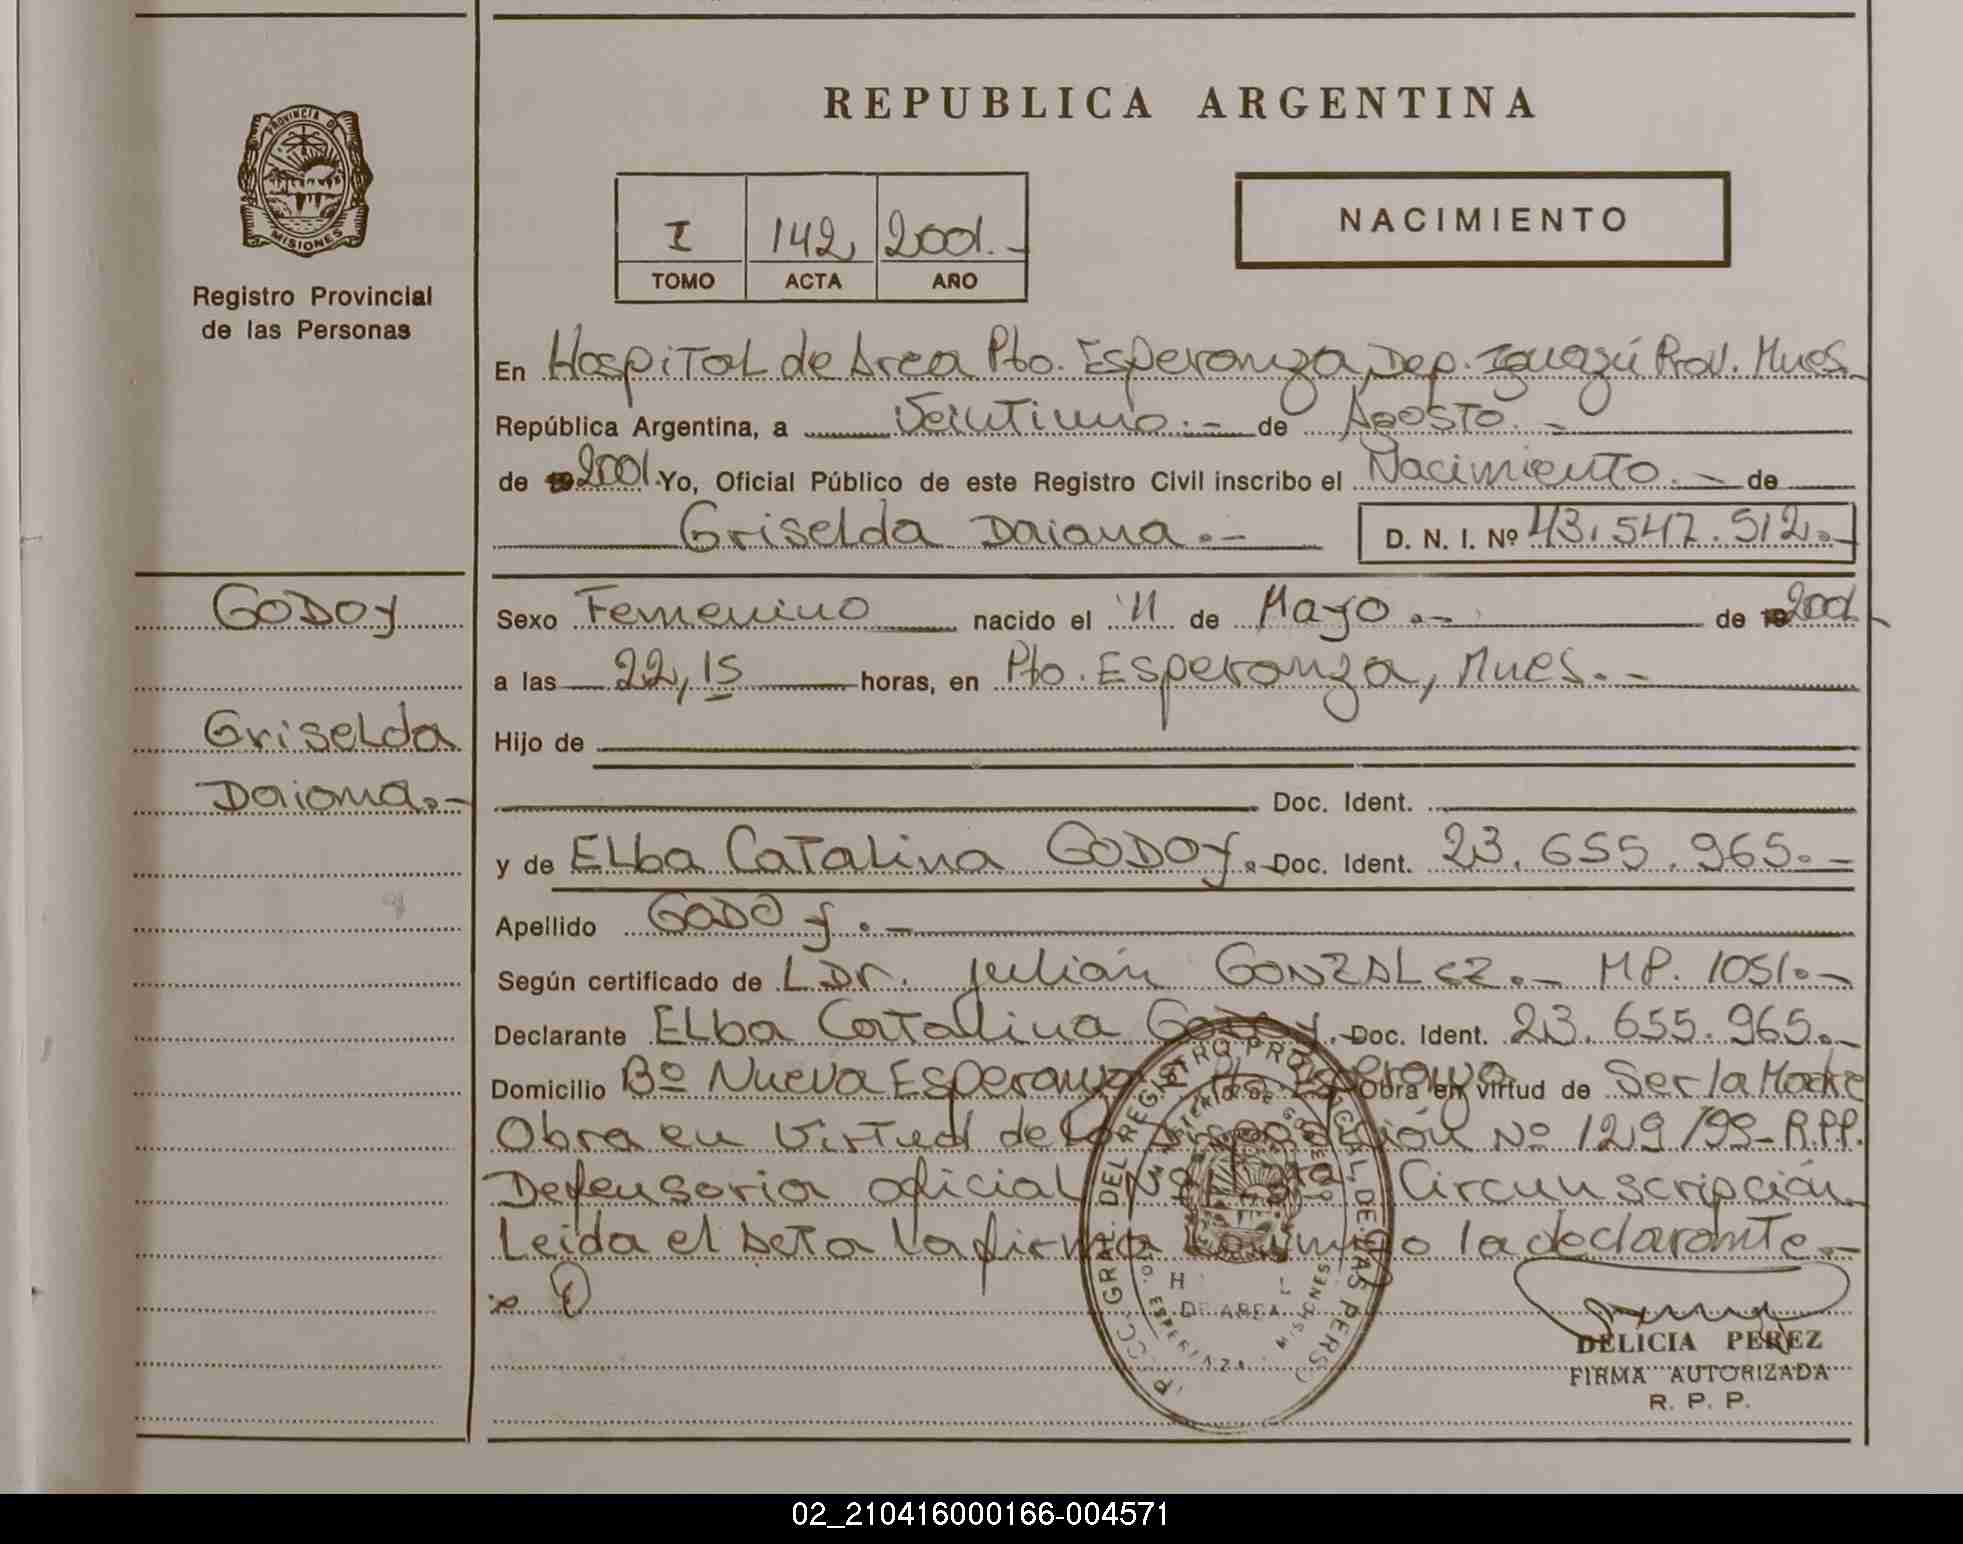 PROVINCIA DE
MISIONES
Registro Provincial
de las Personas
REPUBLICA ARGENTINA
I 142 2001.-
TOMO ACTA AÑO
NACIMIENTO
En Hospital de Area Pto. Esperanza, Dep. Iguazú Prov. Mnes.
República Argentina, a Veintiuno.- de Agosto.-
de 2001. Yo, Oficial Público de este Registro Civil inscribo el Nacimiento.- de
Griselda Daiana.- D. N. I. Nº 43.547.512.-
GODOY
Sexo Femenino nacido el 11 de Mayo.- de 2001
a las 22,15 horas, en Pto. Esperanza, Mnes.-
Griselda
Hijo de
Daiana.-
Doc. Ident.
y de Elba Catalina GODOY.- Doc. Ident. 23.655.965.-
Apellido GODOY.-
Según certificado de Dr. Julián GONZALEZ.- MP. 1051.-
Declarante Elba Catalina Godoy.- Doc. Ident. 23.655.965.-
Domicilio Bº Nueva Esperanza Pto. Esperanza Obra en virtud de Ser la Madre
Obra en Virtud de la Disposición Nº 129/99-R.P.P.
Defensoria oficial Circunscripción
Leida el Acta la firma conmigo la declarante.-
DELICIA PEREZ
FIRMA AUTORIZADA
R. P. P.
02_210416000166-004571